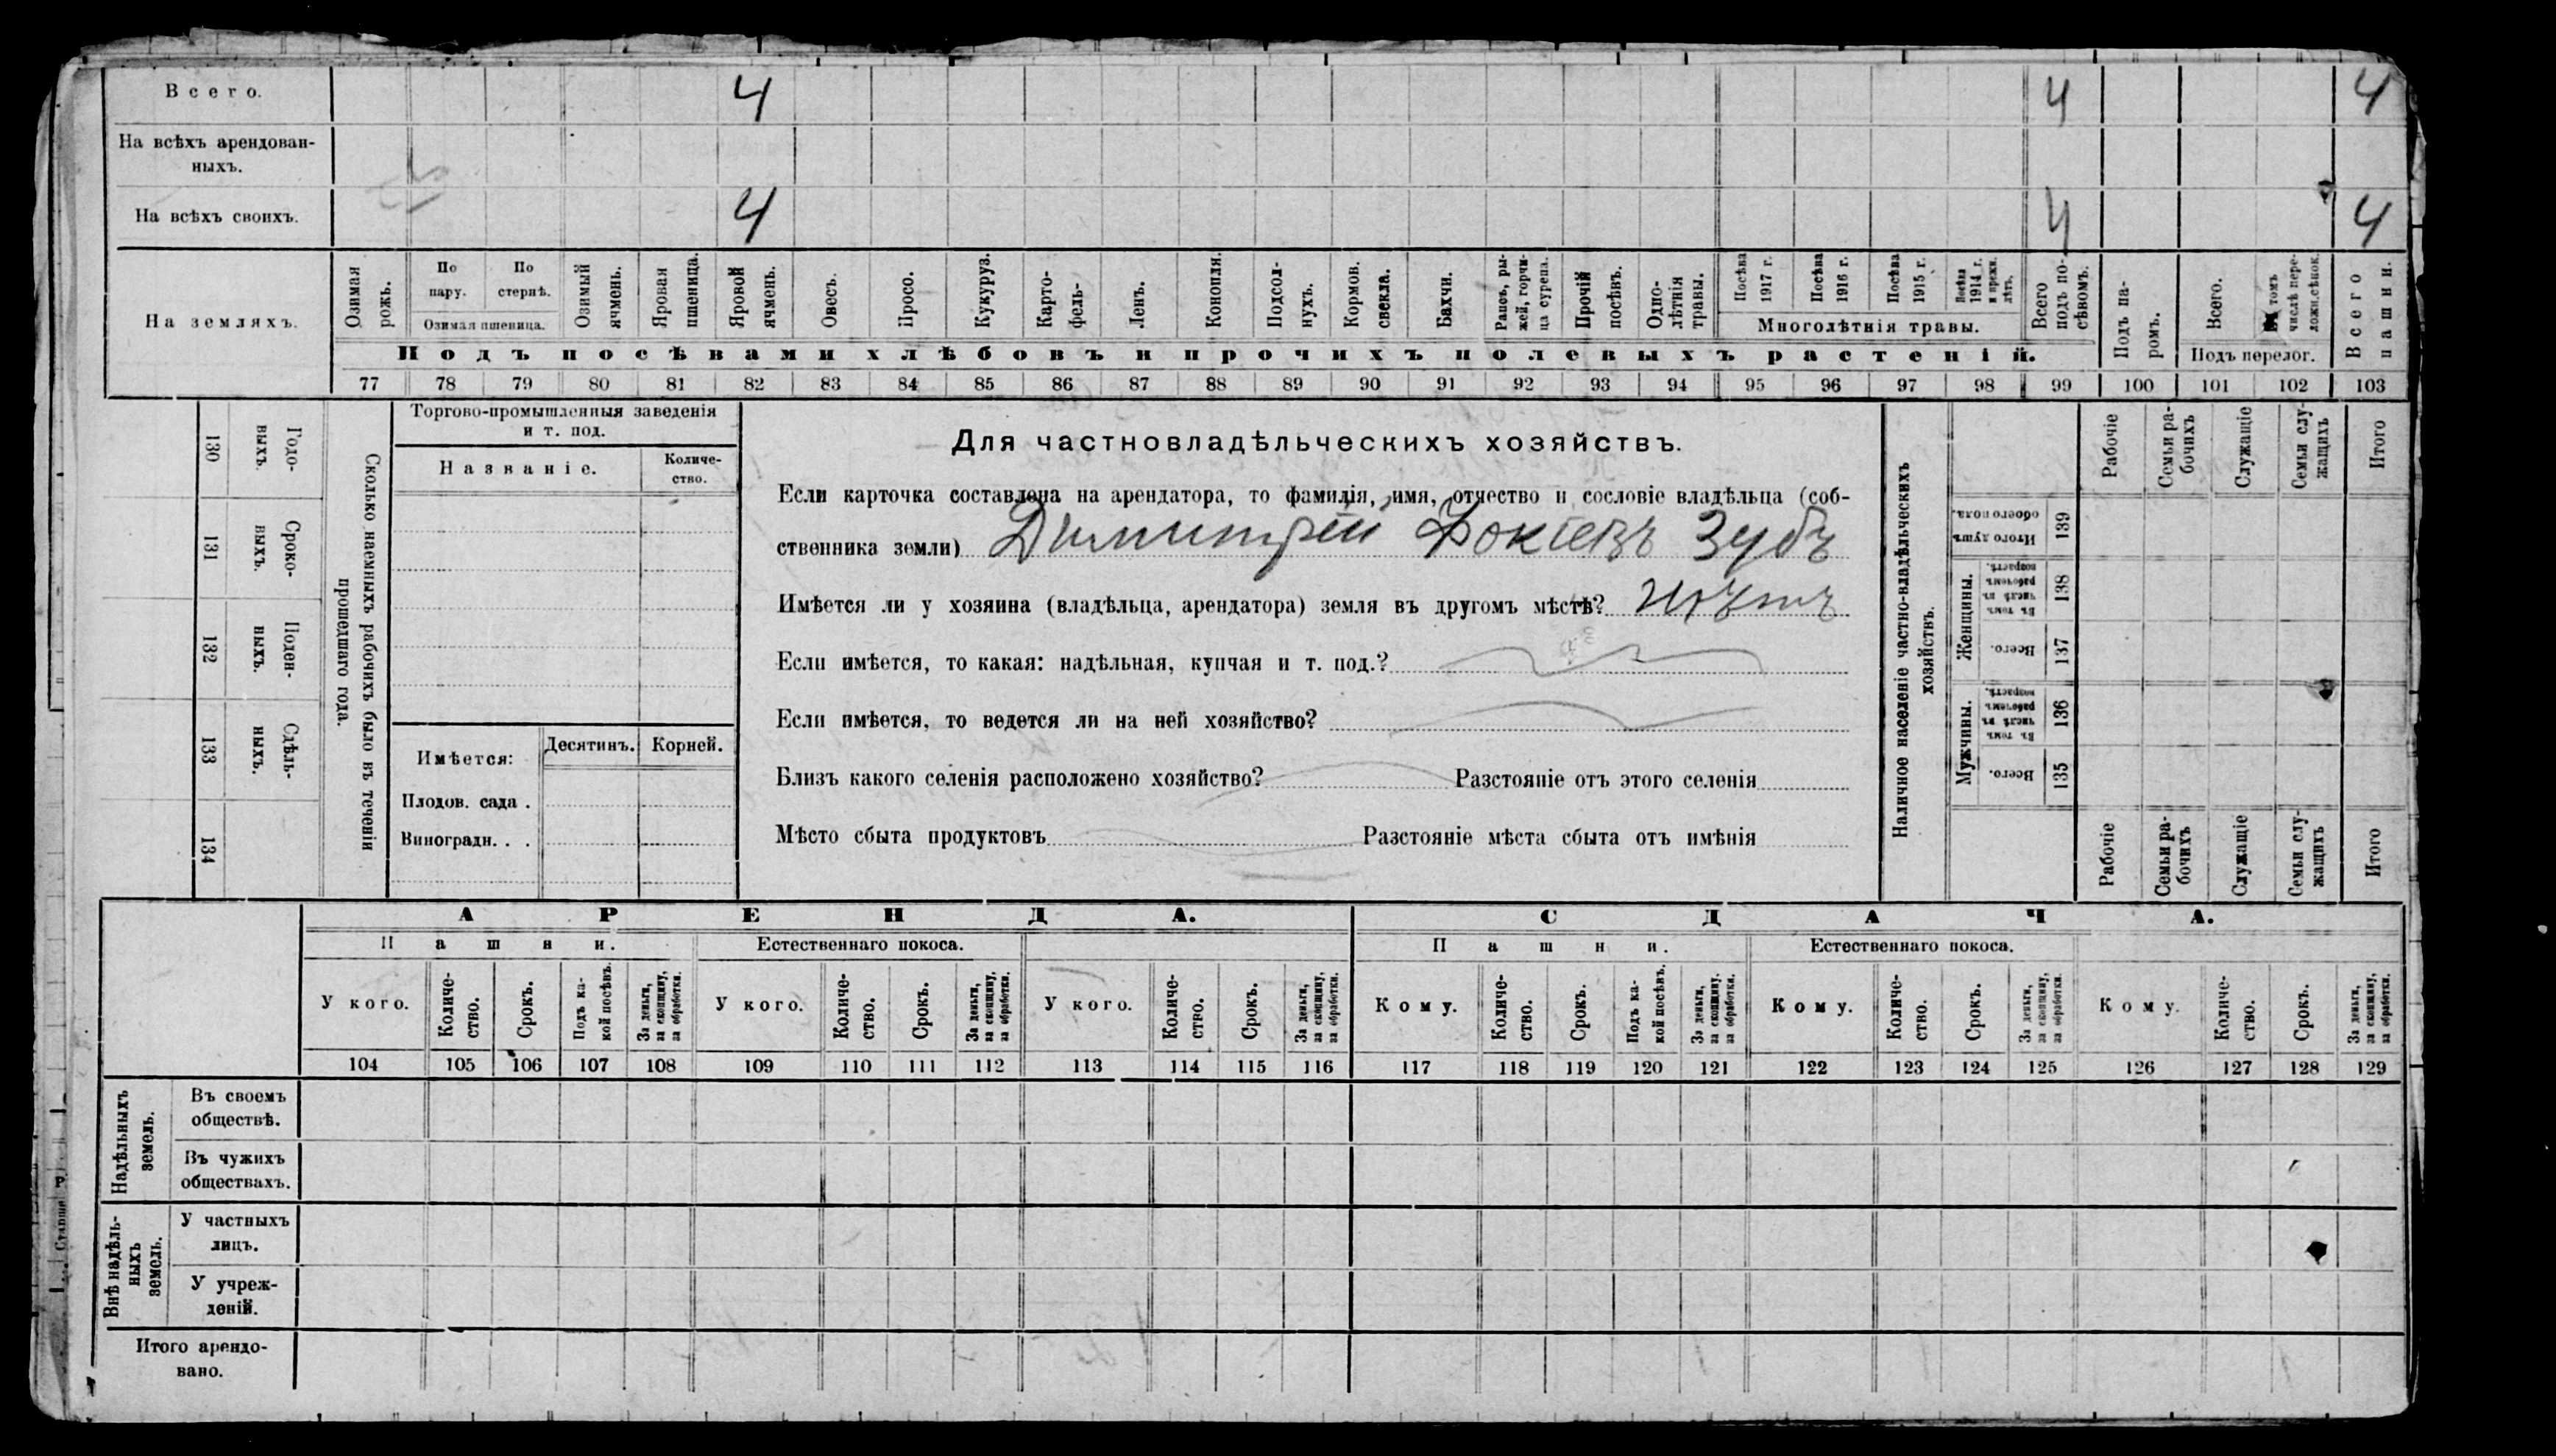 Всего. 4 4 4
На всѣхъ арендован-
ныхъ.
На всѣхъ своихъ. 4 4 4
На земляхъ.
Озимая рожь.
По пару.
По стернѣ.
Озимая пшеница.
Озимый ячмень.
Яровая пшеница.
Яровой ячмень.
Овесъ.
Просо.
Кукуруз.
Карто-
фель-
Ленъ.
Конопля.
Подсол-
нухъ.
Кормов. свекла.
Бахчи.
Рапсъ, ры-
жей, горчи-
ца сурепа.
Прочій посѣвъ.
Одно-
лѣтнія травы.
Посѣва 1917 г.
Посѣва 1916 г.
Посѣва 1915 г.
Посѣва 1914 г. и прежн. лѣтъ.
Многолѣтнія травы.
Всего подъ по-
сѣвомъ.
Подъ посѣвами хлѣбовъ и прочихъ полевыхъ растеній.
Подъ па-
ромъ.
Всего.
томъ числѣ пере-
ложн.сѣнок.
Подъ перелог.
Всего пашни.
77 78 79 80 81 82 83 84 85 86 87 88 89 90 91 92 93 94 95 96 97 98 99 100 101 102 103
130 Годо-
выхъ.
131 Сроко-
ныхъ.
132 Поден-
ныхъ.
133 Сдѣль-
ныхъ.
134
Сколько наемныхъ рабочихъ было въ теченіи
прошедшаго года.
Торгово-промышленныя заведенія
и т. под.
Названіе.
Количе-
ство.
Имѣется: Десятинъ. Корней.
Плодов. сада .
Виноградн. . .
Для частновладѣльческихъ хозяйствъ.
Если карточка составлена на арендатора, то фамилія, имя, отчество и сословіе владѣльца (соб-
ственника земли) Димитрій Фокіевъ Зубъ
Имѣется ли у хозяина (владѣльца, арендатора) земля въ другомъ мѣстѣ? нѣтъ
Если имѣется, то какая: надѣльная, купчая и т. под.?
Если имѣется, то ведется ли на ней хозяйство?
Близъ какого селенія расположено хозяйство? Разстояніе отъ этого селенія
Мѣсто сбыта продуктовъ Разстояніе мѣста сбыта отъ имѣнія
Наличное населеніе частно-владѣльческихъ
хозяйствъ.
Рабочіе
Семьи ра-
бочихъ
Служащіе
Семьи слу-
жащихъ
Итого
Итого душъ обоего пола. 139
Женщины.
Въ томъ числѣ въ рабочемъ возрастѣ. 138
Всего. 137
Мужчины.
Въ томъ числѣ въ рабочемъ возрастѣ. 136
Всего. 135
Рабочіе
Семьи ра-
бочихъ
Служащіе
Семьи слу-
жащихъ
Итого
АРЕНДА. СДАЧА.
Пашни. Естественнаго покоса. Пашни. Естественнаго покоса.
У кого.
Количе-
ство.
Срокъ.
Подъ ка-
кой посѣвъ.
За деньги, за скопщину, за обработки.
У кого.
Количе-
ство.
Срокъ.
За деньги, за скопщину, за обработки.
У кого.
Количе-
ство.
Срокъ.
За деньги, за скопщину, за обработки.
Кому.
Количе-
ство.
Срокъ.
Подъ ка-
кой посѣвъ.
За деньги, за скопщину. за обработки.
Кому.
Количе-
ство.
Срокъ.
За деньги, за скопщину, за обработки.
Кому.
Количе-
ство.
Срокъ.
За деньги, за скопщину, за обработки.
104 105 106 107 108 109 110 111 112 113 114 115 116 117 118 119 120 121 122 123 124 125 126 127 128 129
Надѣльныхъ земель.
Въ своемъ
обществѣ.
Въ чужихъ
обществахъ.
Внѣ надѣль-
ныхъ земель.
У частныхъ
лицъ.
У учреж-
деній.
Итого арендо-
вано.